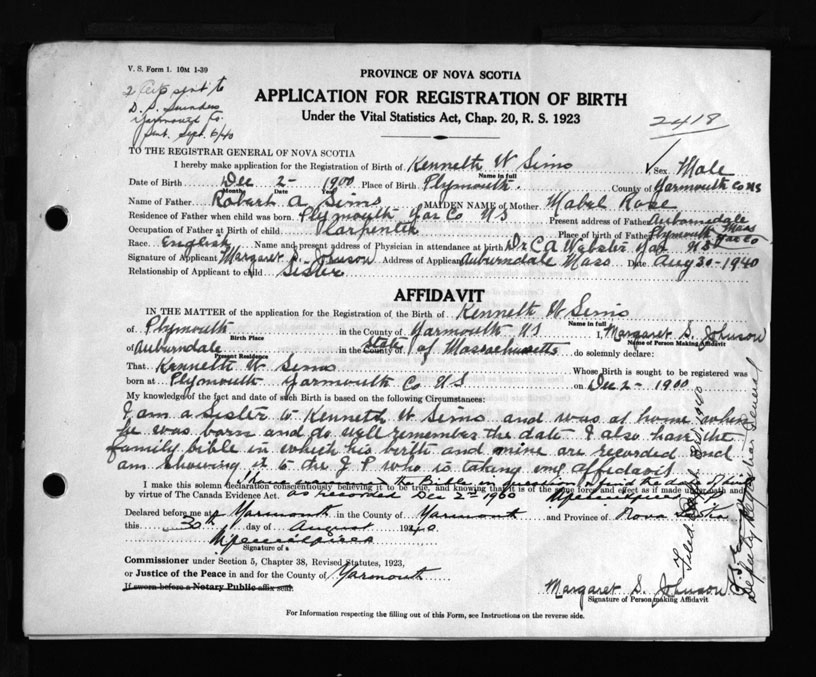 V. S. Form 1. 10M 1-39
PROVINCE OF NOVA SCOTIA
2 sent to
D. S. Saunders
Yarmouth Co.
Sent. Sept. 6/40
APPLICATION FOR REGISTRATION OF BIRTH
Under the Vital Statistics Act, Chap. 20, R. S. 1923
2418
TO THE REGISTRAR GENERAL OF NOVA SCOTIA
I hereby make application for the Registration of Birth of Kenneth W Sims Sex Male
Name in full
Date of Birth Dec 2- 1900 Place of Birth Plymouth. County of Yarmouth Co NS
Month Date Year
Name of Father Robert A. Sims MAIDEN NAME of Mother Mabel Rose
Residence of Father when child was born. Plymouth Yar Co NS Present address of Father Auburndale Mass
Occupation of Father at Birth of child Carpenter Place of birth of Father Plymouth Yar Co
Race English Name and present address of Physician in attendance at birth Dr C A Webster Yar NS
Signature of Applicant Margaret S. Johnson Address of Applicant Auburndale Mass Date Aug 30-1940
Relationship of Applicant to child Sister
AFFIDAVIT
IN THE MATTER of the application for the Registration of the Birth of Kenneth W Sims
Name in full
of Plymouth in the County of Yarmouth NS I, Margaret S. Johnson
Birth Place Name of Person Making Affidavit
of Auburndale in the County State of Massachusetts do solemnly declare:
Present Residence
That Kenneth W Sims Whose Birth is sought to be registered was
born at Plymouth Yarmouth Co NS on Dec 2- 1900
My knowledge of the fact and date of such Birth is based on the following Circumstances:
I am a sister to Kenneth W Sims and was at home when
he was born and do well remember the date I also have the
family bible in which his birth and mine are recorded and
am showing it to the J P who is taking my affidavit
I have examined the Bible in question & find the date of birth
I make this solemn declaration conscientiously believing it to be true, and knowing that it is of the same force and effect as if made under oath and
by virtue of The Canada Evidence Act. as recorded Dec 2nd 1900
Declared before me at Yarmouth in the County of Yarmouth and Province of Nova Scotia
this 30th day of August 1940
Signature of a
Commissioner under Section 5, Chapter 38, Revised Statutes, 1923,
or Justice of the Peace in and for the County of Yarmouth
If sworn before a Notary Public affix seal.
Margaret S. Johnson
Signature of Person making Affidavit
For Information respecting the filling out of this Form, see Instructions on the reverse side.
Deputy Registrar General